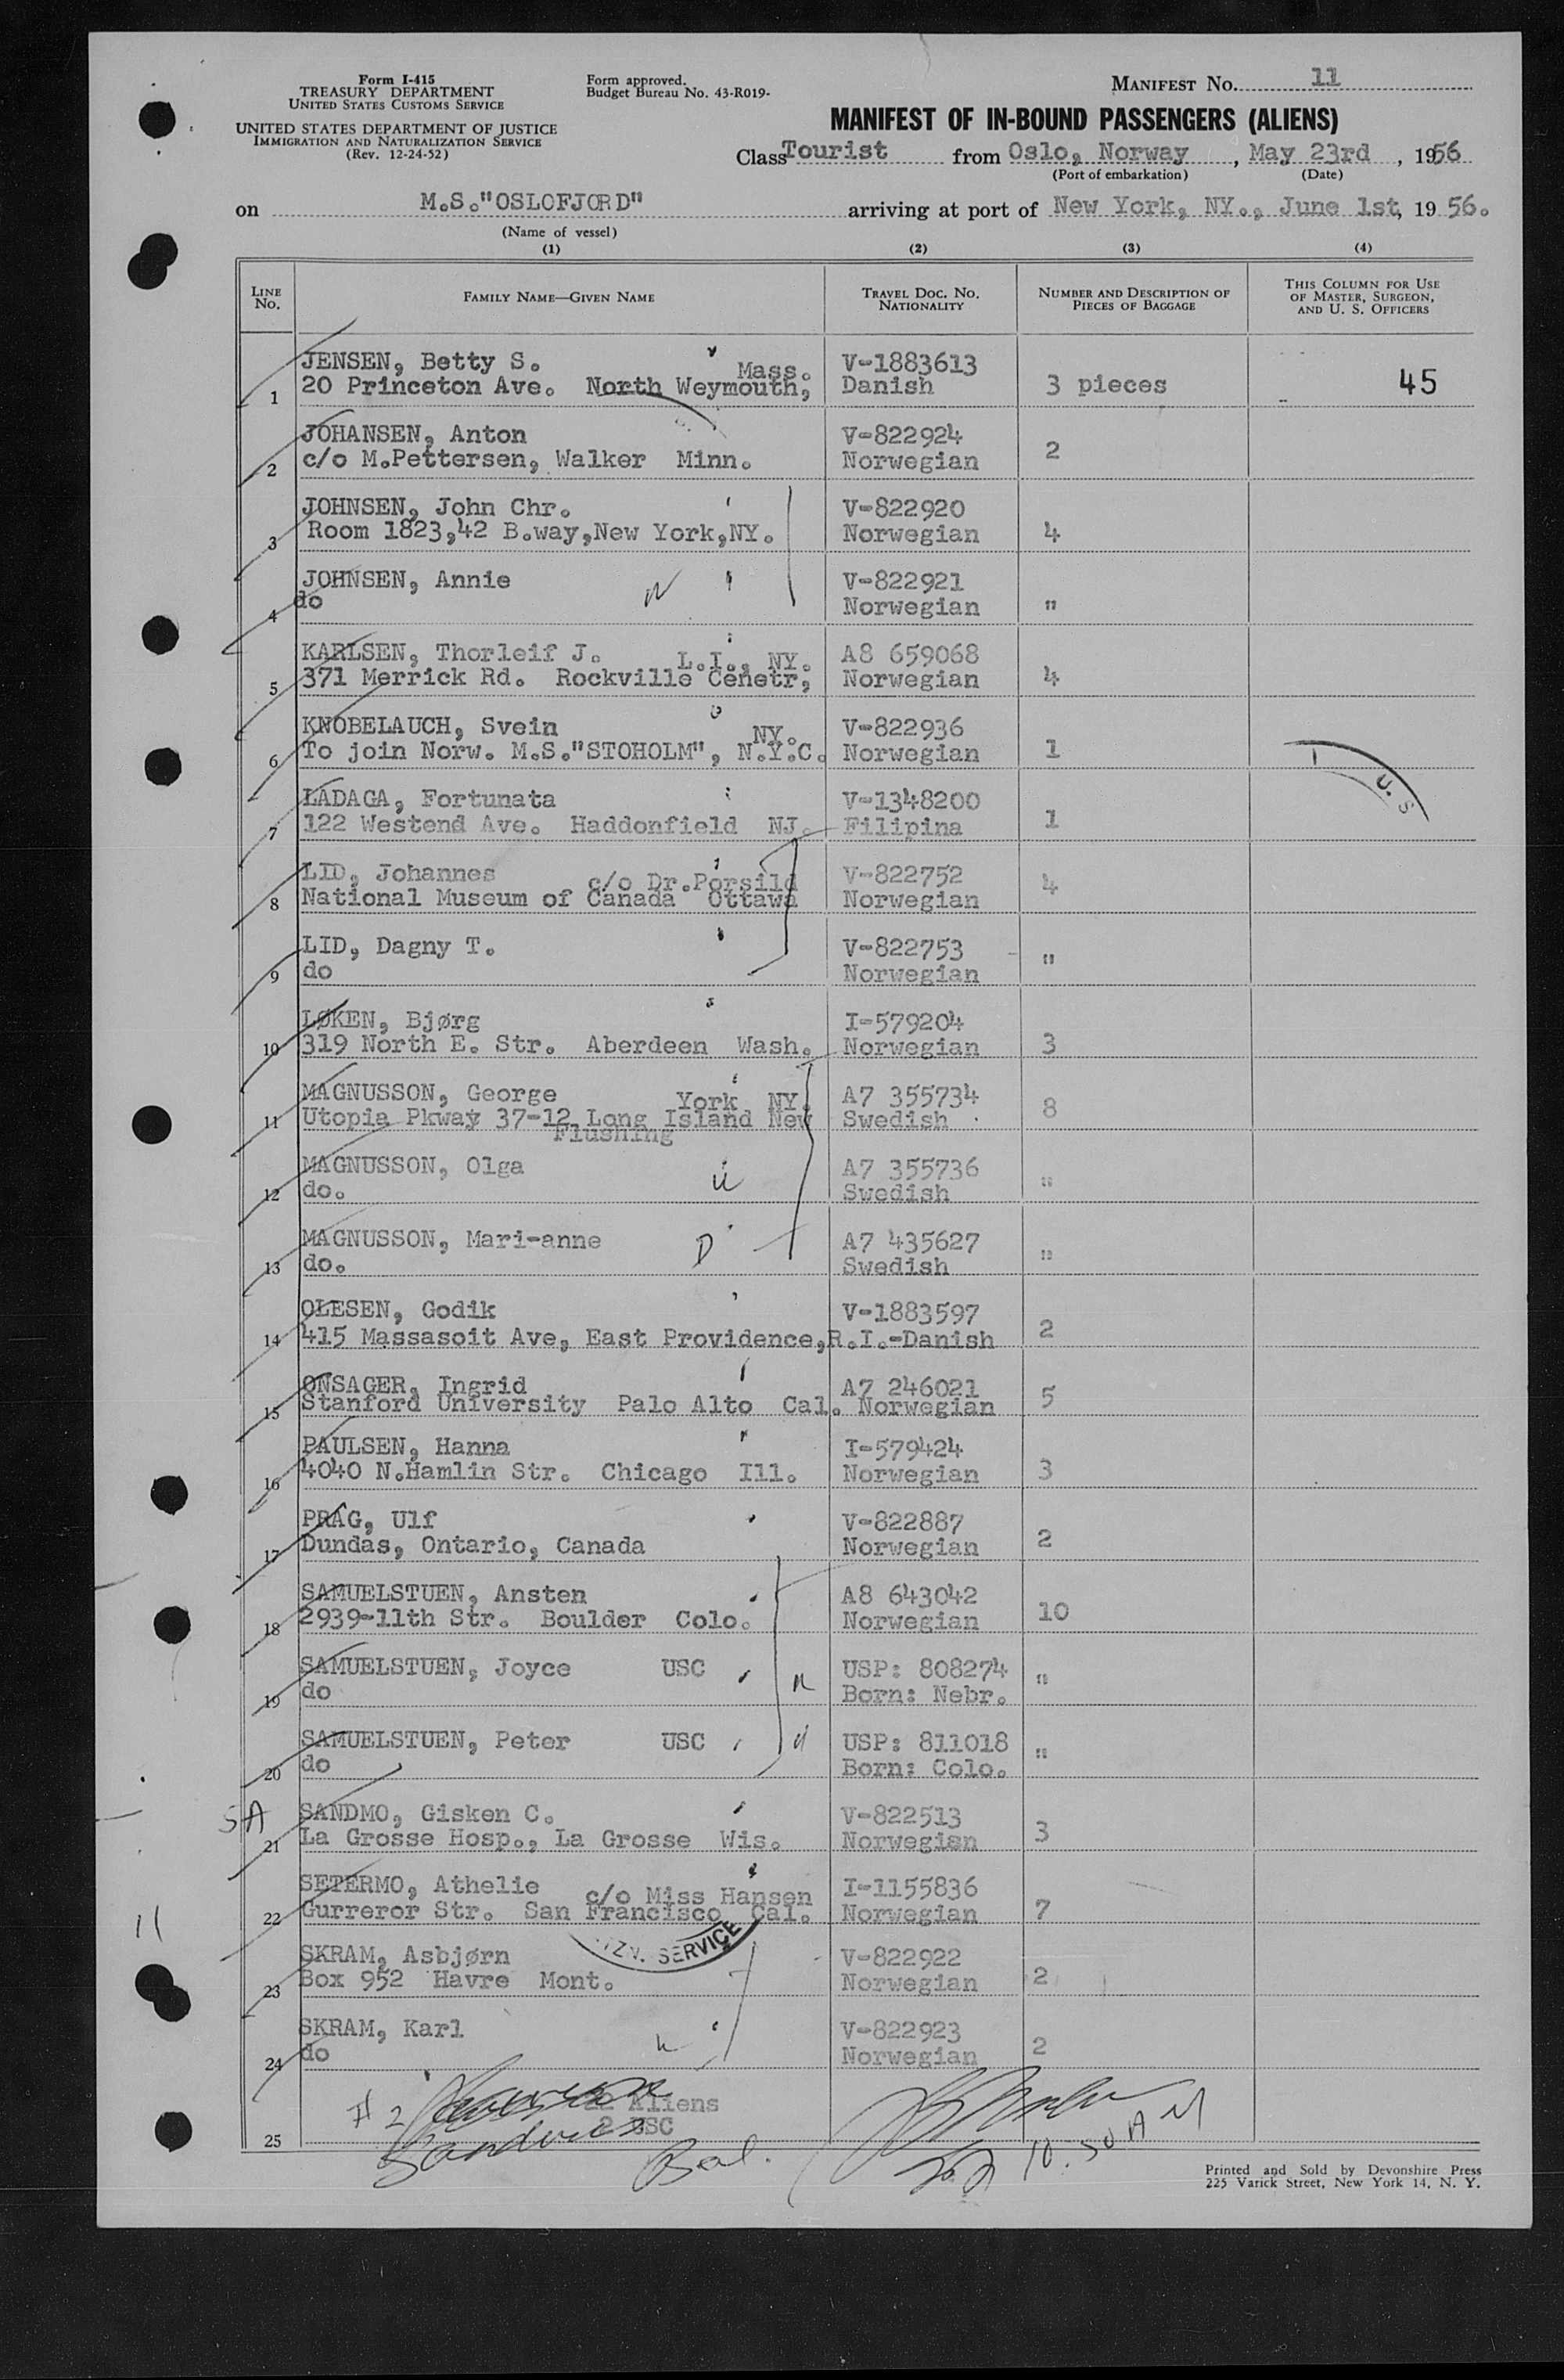 Form I-415
TREASURY DEPARTMENT
UNITED STATES CUSTOMS SERVICE
UNITED STATES DEPARTMENT OF JUSTICE
IMMIGRATION AND NATURALIZATION SERVICE
(Rev. 12-24-52)
Form approved.
Budget Bureau No. 43-R019-
MANIFEST No. 11
MANIFEST OF IN-BOUND PASSENGERS (ALIENS)
Class Tourist from Oslo, Norway, May 23rd, 1956
(Port of embarkation) (Date)
on M.S."OSLOFJORD" arriving at port of New York, NY., June 1st, 1956.
(Name of vessel)
(1) (2) (3) (4)
LINE No. FAMILY NAME—GIVEN NAME TRAVEL DOC. NO. NATIONALITY NUMBER AND DESCRIPTION OF PIECES OF BAGGAGE THIS COLUMN FOR USE OF MASTER, SURGEON, AND U. S. OFFICERS
JENSEN, Betty S. Mass. V-1883613
1 20 Princeton Ave. North Weymouth, Danish 3 pieces 45
JOHANSEN, Anton V-822924
2 c/o M.Pettersen, Walker Minn. Norwegian 2
JOHNSEN, John Chr. V-822920
3 Room 1823,42 B.way,New York,NY. Norwegian 4
JOHNSEN, Annie V-822921
4 do Norwegian "
KARLSEN, Thorleif J. L.I., NY. A8 659068
5 371 Merrick Rd. Rockville Cenetr, Norwegian 4
KNOBELAUCH, Svein NY. V-822936
6 To join Norw. M.S."STOHOLM", N.Y.C. Norwegian 1
U. S
LADAGA, Fortunata V-1348200
7 122 Westend Ave. Haddonfield NJ. Filipina 1
LID, Johannes c/o Dr.Porsild V-822752
8 National Museum of Canada Ottawa Norwegian 4
LID, Dagny T. V-822753
9 do Norwegian "
LØKEN, Bjørg I-579204
10 319 North E. Str. Aberdeen Wash. Norwegian 3
MAGNUSSON, George York NY. A7 355734
11 Utopia Pkway 37-12 Long Island New Swedish 8
Flushing
MAGNUSSON, Olga A7 355736
12 do. Swedish "
MAGNUSSON, Mari-anne D A7 435627
13 do. Swedish "
OLESEN, Godik V-1883597
14 415 Massasoit Ave, East Providence,R.I.-Danish 2
ONSAGER, Ingrid A7 246021
15 Stanford University Palo Alto Cal. Norwegian 5
PAULSEN, Hanna I-579424
16 4040 N.Hamlin Str. Chicago Ill. Norwegian 3
PRAG, Ulf V-822887
17 Dundas, Ontario, Canada Norwegian 2
SAMUELSTUEN, Ansten A8 643042
18 2939-11th Str. Boulder Colo. Norwegian 10
SAMUELSTUEN, Joyce USC USP: 808274
19 do Born: Nebr. "
SAMUELSTUEN, Peter USC USP: 811018
20 do Born: Colo. "
SA SANDMO, Gisken C. V-822513
21 La Grosse Hosp., La Grosse Wis. Norwegian 3
SETERMO, Athelie c/o Miss Hansen I-1155836
22 Gurreror Str. San Francisco Cal. Norwegian 7
11
TZN. SERVICE
SKRAM, Asbjørn V-822922
23 Box 952 Havre Mont. Norwegian 2
SKRAM, Karl V-822923
24 do Norwegian 2
# 2 22 Aliens
25 2 USC
Bal. 10.50 AM
Printed and Sold by Devonshire Press
225 Varick Street, New York 14, N. Y.